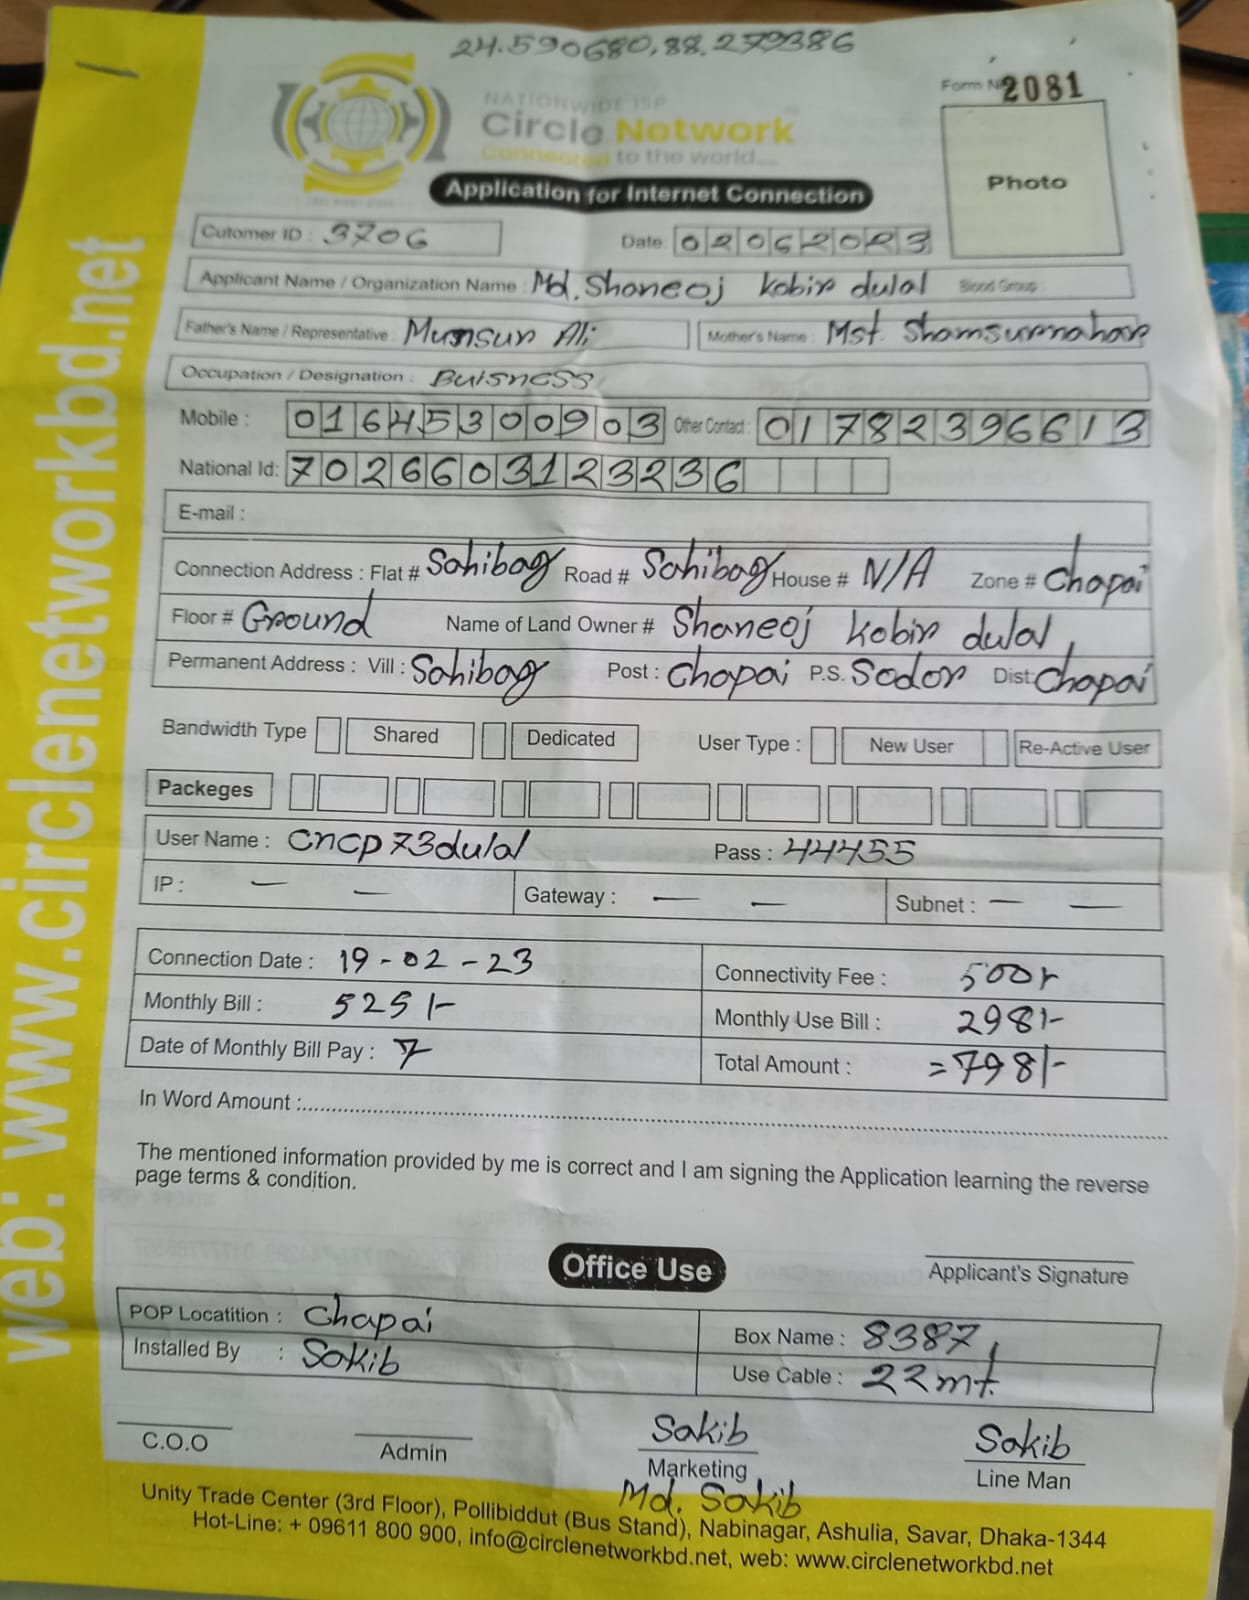 24.590680,88.279386
Form No 2081
NATIONWIDE ISP
Circle Network
Connected to the world...
Photo
Application for Internet Connection
Cutomer ID : 3706 Date: 02062023
Applicant Name / Organization Name : Md. Shaneoj Kobir dulal Blood Group :
Father's Name / Representative : Munsur Ali Mother's Name : Mst. Shamsurnahar
Occupation / Designation : Buisness
Mobile : 01645300903 Other Contact : 01782396613
National Id: 7026603123236
E-mail :
Connection Address : Flat # Sahibag Road # Sahibag House # N/A Zone # Chapai
Floor # Ground Name of Land Owner # Shaneoj Kobir dulal,
Permanent Address : Vill : Sahibag Post : Chapai P.S. Sador Dist: Chapai
Bandwidth Type Shared Dedicated User Type : New User Re-Active User
Packeges
User Name : cncp73dulal Pass : 44455
IP : — — Gateway : — — Subnet : — —
Connection Date : 19-02-23 Connectivity Fee : 500/-
Monthly Bill : 525/- Monthly Use Bill : 298/-
Date of Monthly Bill Pay : 7 Total Amount : =798/-
In Word Amount :
The mentioned information provided by me is correct and I am signing the Application learning the reverse
page terms & condition.
Applicant's Signature
Office Use
POP Locatition : Chapai Box Name : 8387,
Installed By : Sakib Use Cable : 22mt.
Sakib Sakib
C.O.O Admin Marketing Line Man
Md. Sakib
Unity Trade Center (3rd Floor), Pollibiddut (Bus Stand), Nabinagar, Ashulia, Savar, Dhaka-1344
Hot-Line: + 09611 800 900, info@circlenetworkbd.net, web: www.circlenetworkbd.net
web: www.circlenetworkbd.net